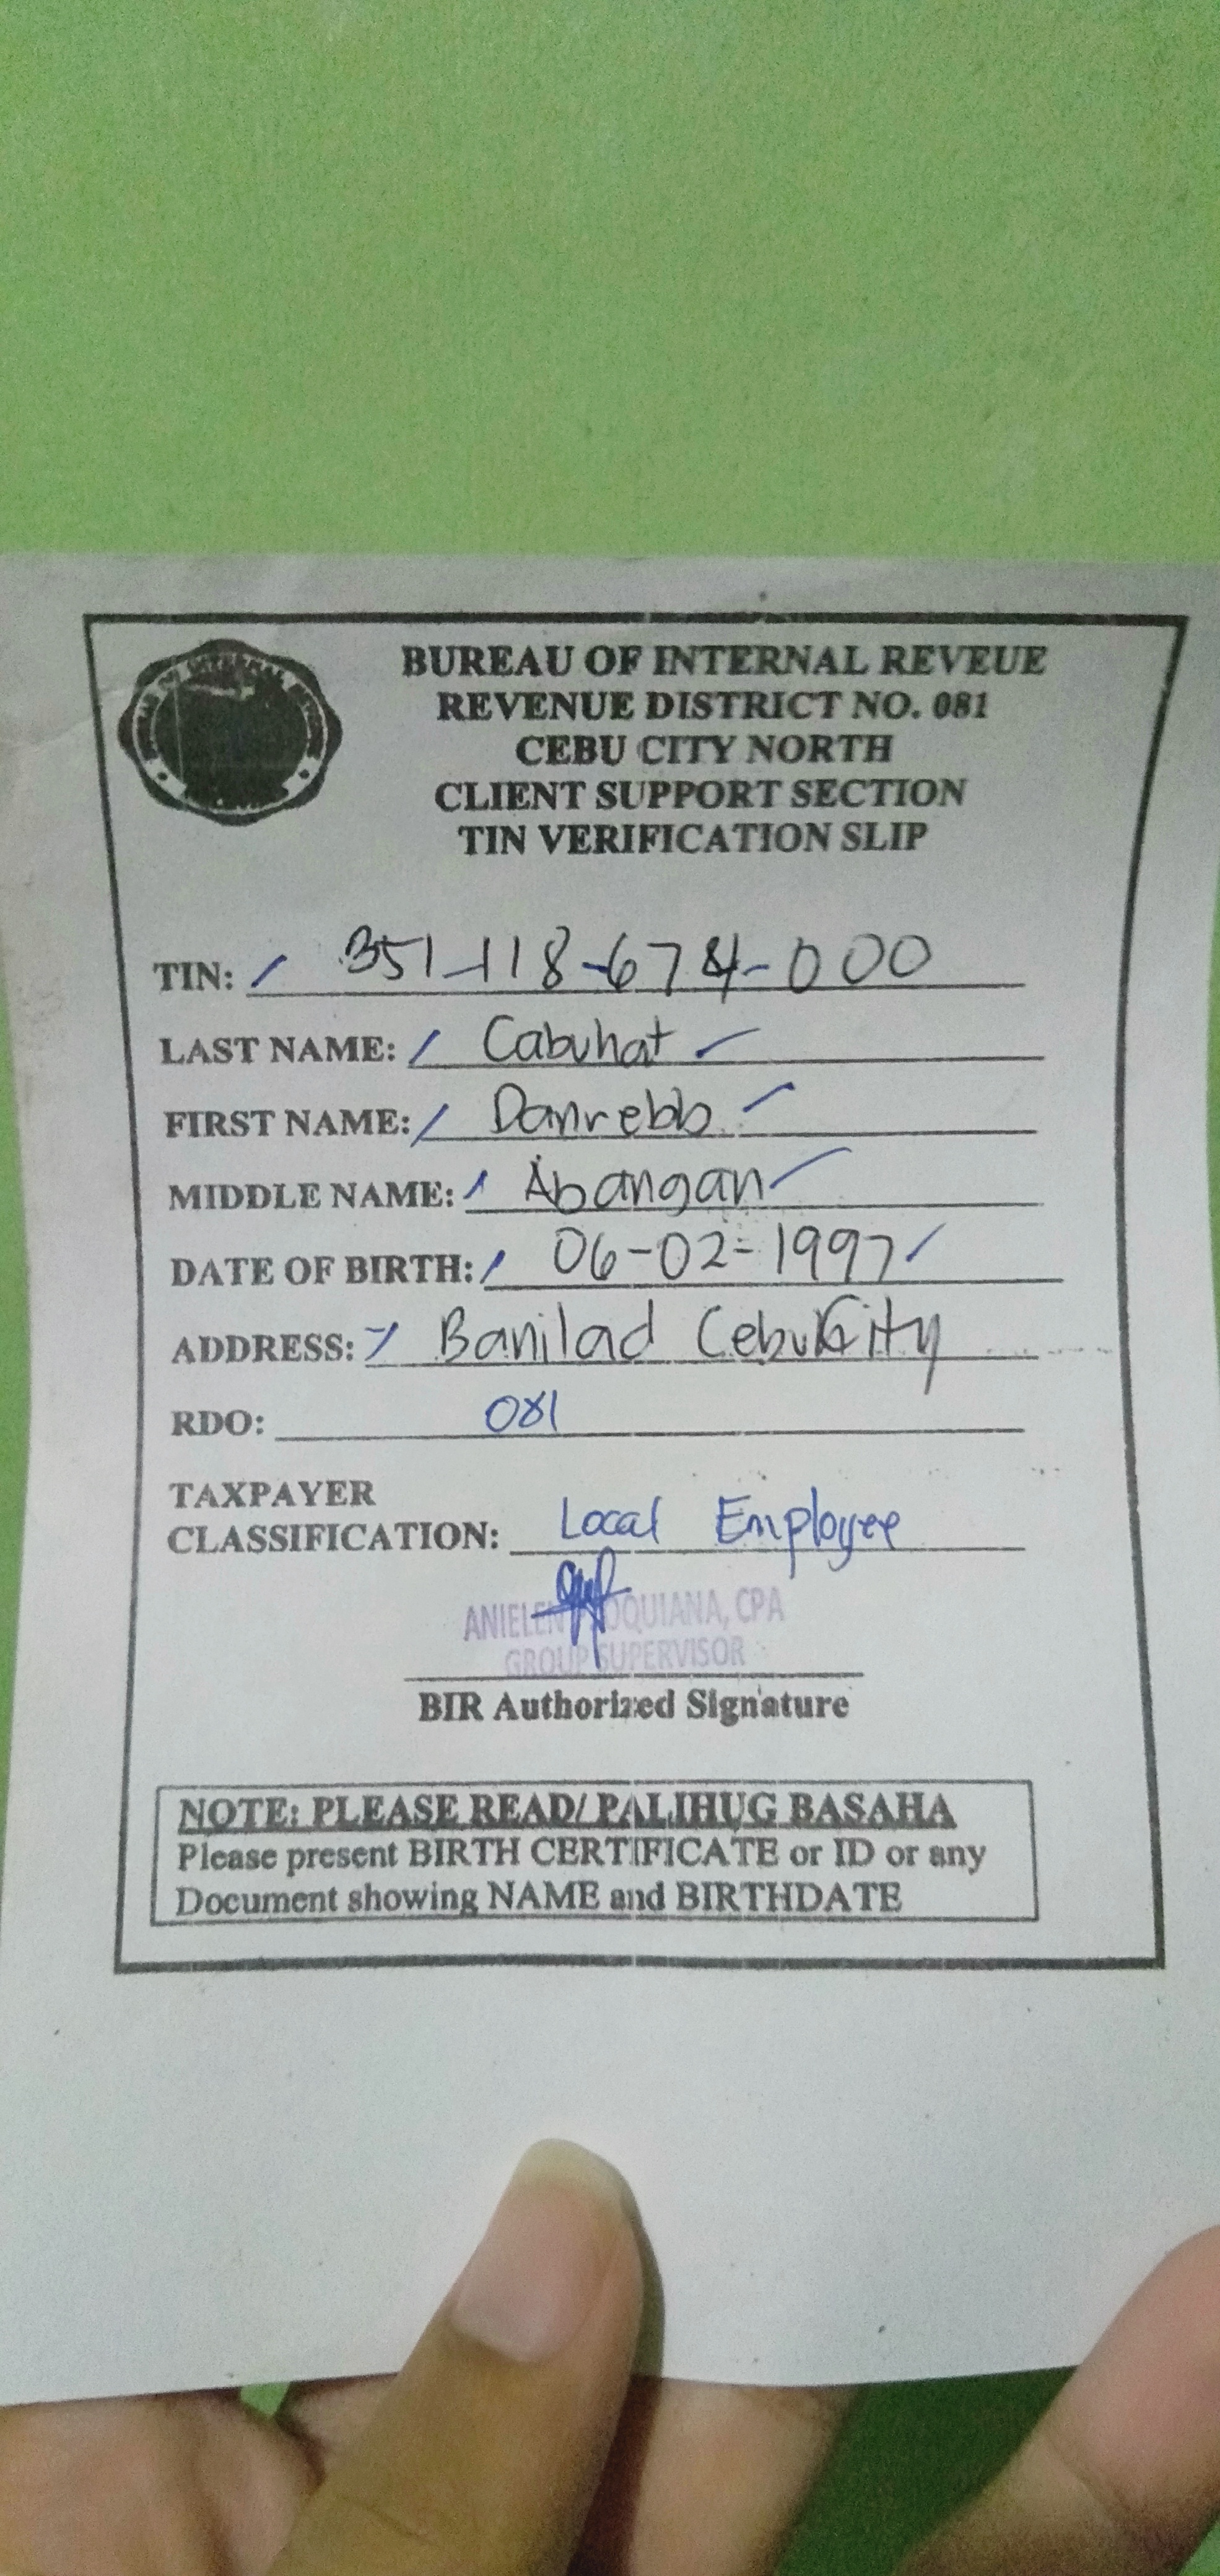 BUREAU OF INTERNAL REVEUE
REVENUE DISTRICT NO. 081
CEBU CITY NORTH
CLIENT SUPPORT SECTION
TIN VERIFICATION SLIP
TIN: 351-118-674-000
LAST NAME: Cabuhat
FIRST NAME: Danrebb
MIDDLE NAME: Abangan
DATE OF BIRTH: 06-02-1997
ADDRESS: Banilad Cebu City
RDO: 081
TAXPAYER
CLASSIFICATION: Local Employee
CPA
GROUP SUPERVISOR
BIR Authorized Signature
NOTE: PLEASE READ/ PALIHUG BASAHA
Please present BIRTH CERTIFICATE or ID or any
Document showing NAME and BIRTHDATE